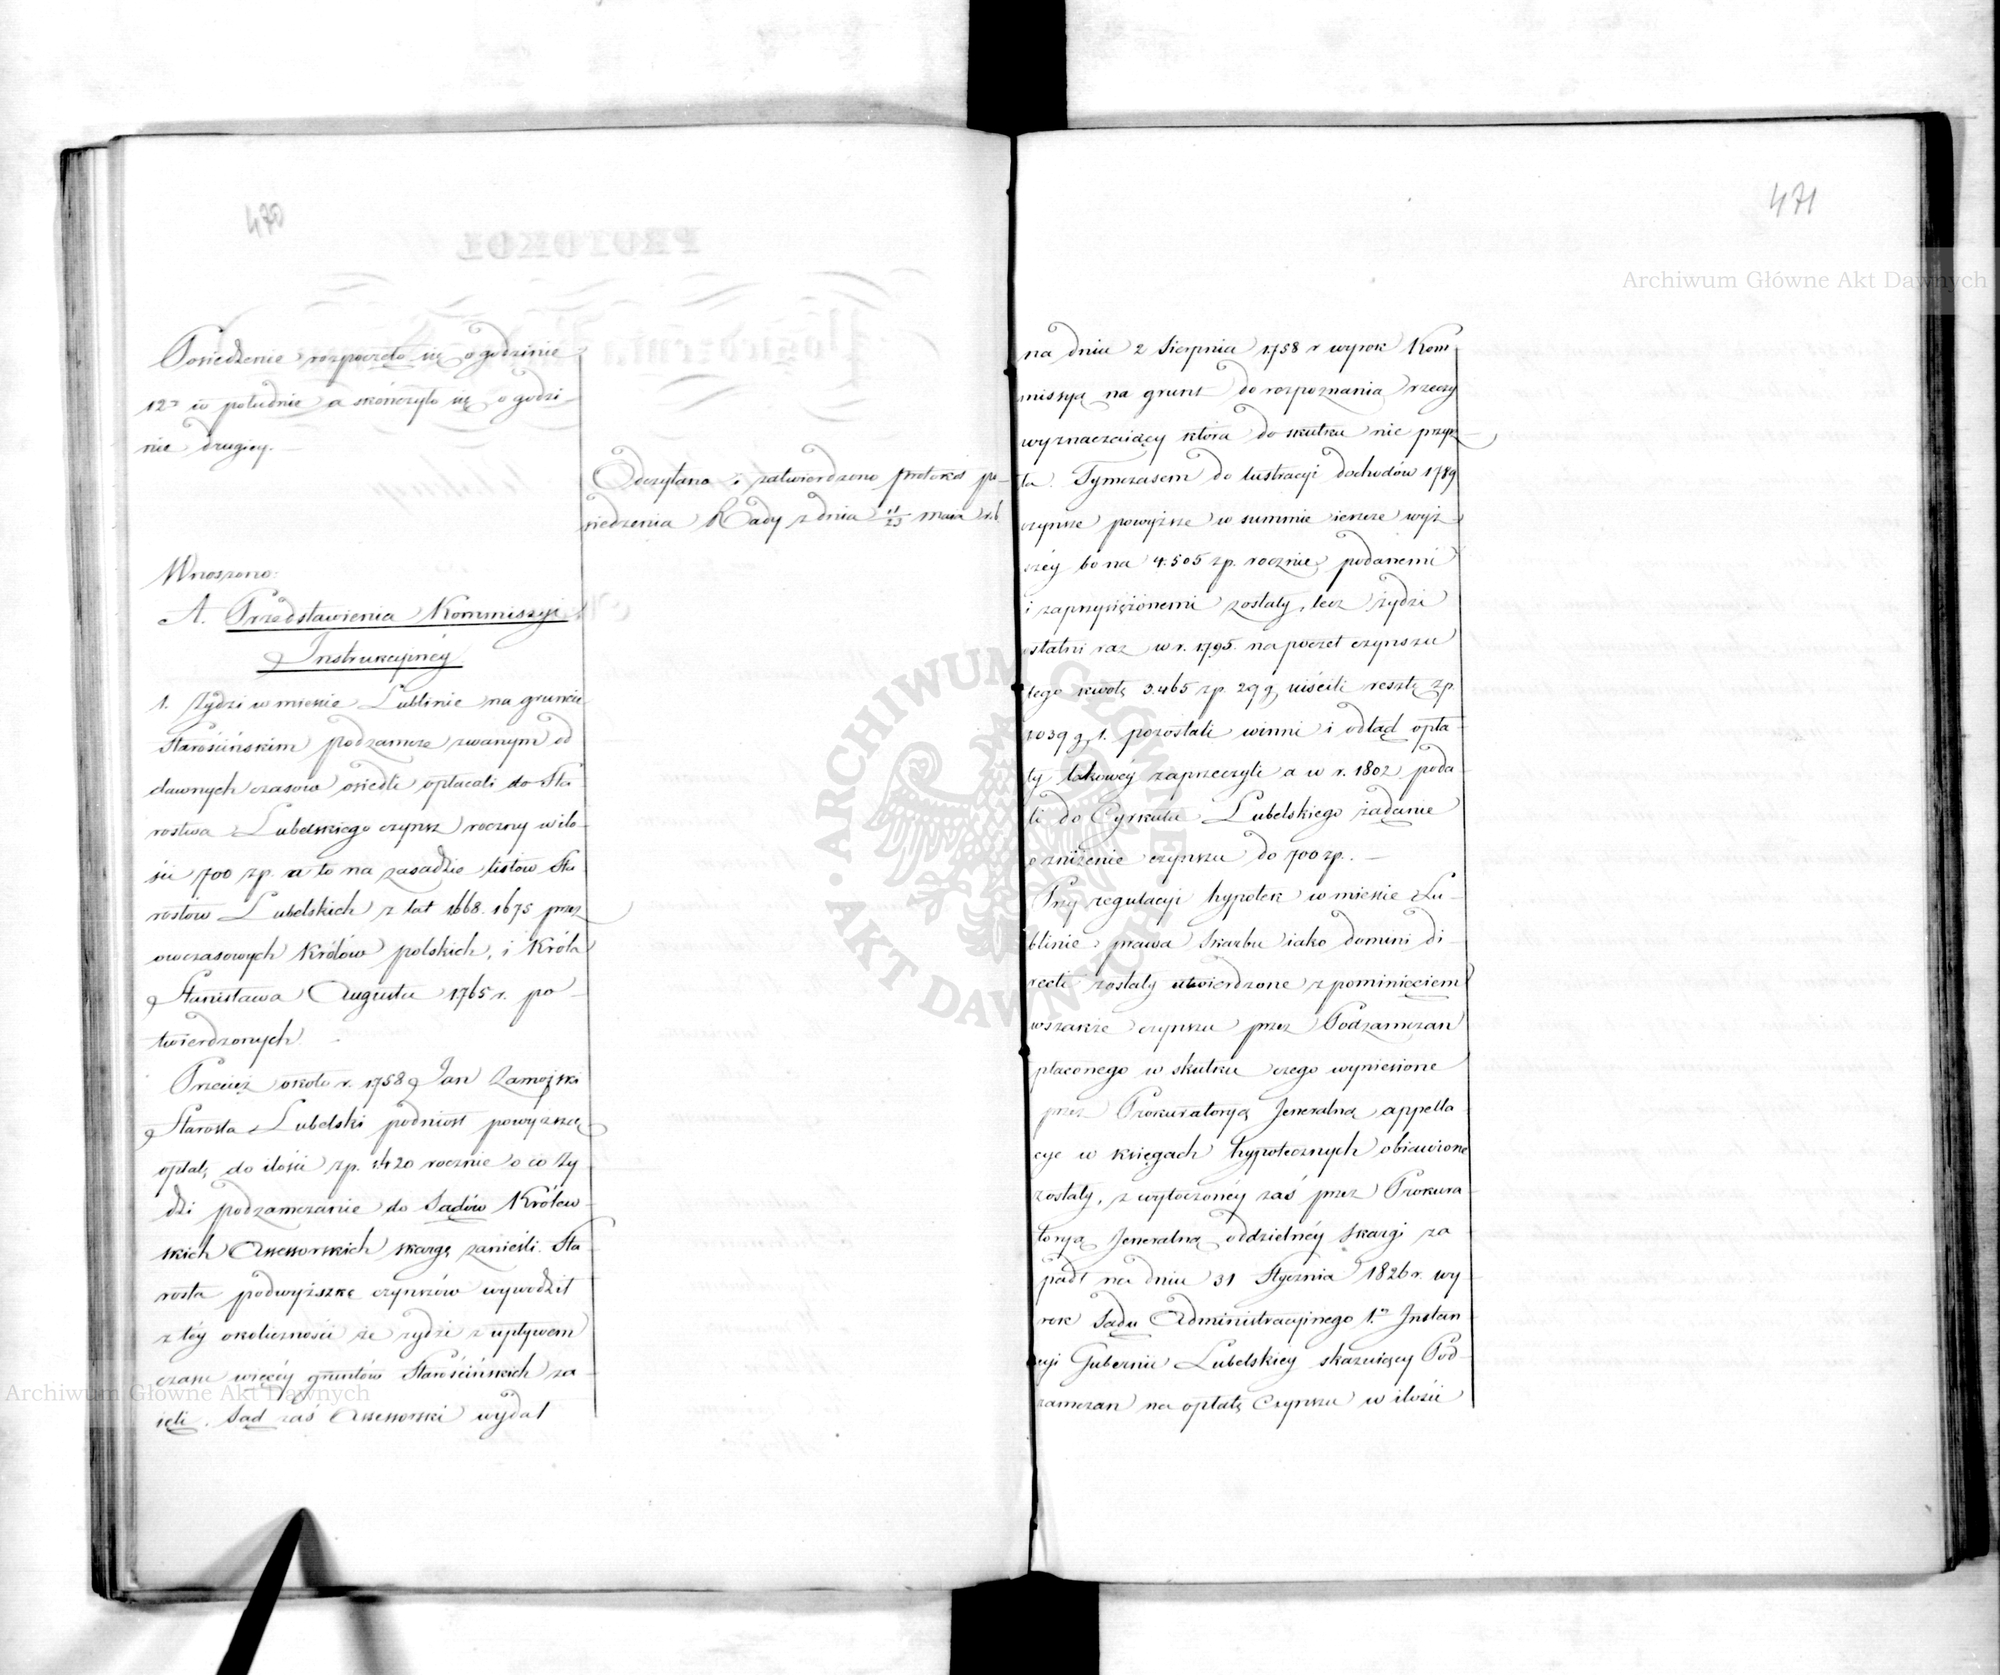 470
Posiedzenie rozpoczęło się o godzinie
12ᵉʲ w południe a skończyło się o godzi-
nie drugiey.
Odczytano i zatwierdzono protokoł po-
siedzenia Rady z dnia 11/23 maia r.b.
Wnoszono:
A. Przedstawienia Kommissyi
Instrukcyiney
1. Żydzi w mieście Lublinie na gruncie
Starościńskim podzamcze zwanym od
dawnych czasow osiedli opłacali do Sta-
rostwa Lubelskiego czynsz roczny w ilo-
ści 700 zp. a to na zasadzie listów Sta
rostów Lubelskich z lat 1668. 1675 przez
owczasowych Królów polskich, i Króla
Stanisława Augusta 1765 r. po-
twierdzonych.
Przecież około r. 1758 Jan Zamojski
Starosta Lubelski podniosł powyższą
opłatę do ilości zp. 1420 rocznie o co Ży
dzi podzamczanie do Sądów Królew-
skich Assessorskich skargę zanieśli. Sta
rosta podwyższkę czynszów wywodził
z téy okoliczności że żydzi z upływem
czasu więcéy gruntów Starościńskich za-
ięli. Sąd zaś Assessorski wydał
471
na dniu 2 Sierpnia 1758 r wyrok Kom-
missyą na grunt do rozpoznania rzeczy
wyznaczaiący która do skutku nie przyszła
ta. Tymczasem do lustracyi dochodów 1789
czynsze powyższe w summie ieszcze wyż-
széy bo na 4.505 zp. rocznie podanemi
i zaprzysiężonemi zostały, lecz żydzi
ostatni raz w r. 1795. na poczet czynszu
tego kwotę 3.465 zp. 29 g uiścili resztę zp.
1039 g 1. pozostali winni i odtąd opła-
ty takowéy zaprzeczyli a w r. 1802 poda-
li do Cyrkułu Lubelskiego żądanie
o zniżenie czynszu do 700 zp. —
Przy regulacyi hypotek w mieście Lu-
blinie prawa Skarbu iako domini di-
recti zostały utwierdzone z pominięciem
wszakże czynszu przez Podzamczan
płaconego w skutku czego wyniesione
przez Prokuratoryą Jeneralną appella-
cye w księgach hypotecznych obiawione
zostały, z wytoczonéy zaś przez Prokura-
toryą Jeneralną oddzielnéy skargi za-
padł na dniu 31 Stycznia 1826 r. wy-
rok Sądu Administracyinego 1ᵉʲ Instan-
cyi Gubernii Lubelskiey skazuiący Pod-
zamczan na opłatę Czynszu w ilości
Archiwum Główne Akt Dawnych
Archiwum Główne Akt Dawnych
ARCHIWUM GŁÓWNE AKT DAWNYCH